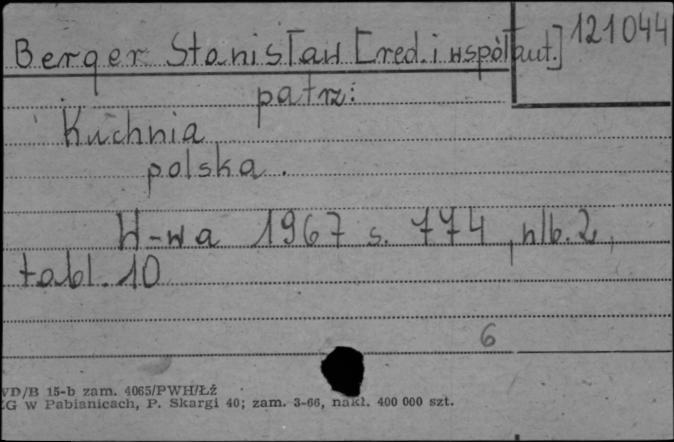 Berger Stanisław [red. i współaut.] 121044
patrz:
Kuchnia
polska.
W-wa 1967 s. 774, nlb. 2,
tabl. 10
6
WD/B 15-b zam. 4065/PWH/Łż
ZG w Pabianicach, P. Skargi 40; zam. 3-66, nakł. 400 000 szt.